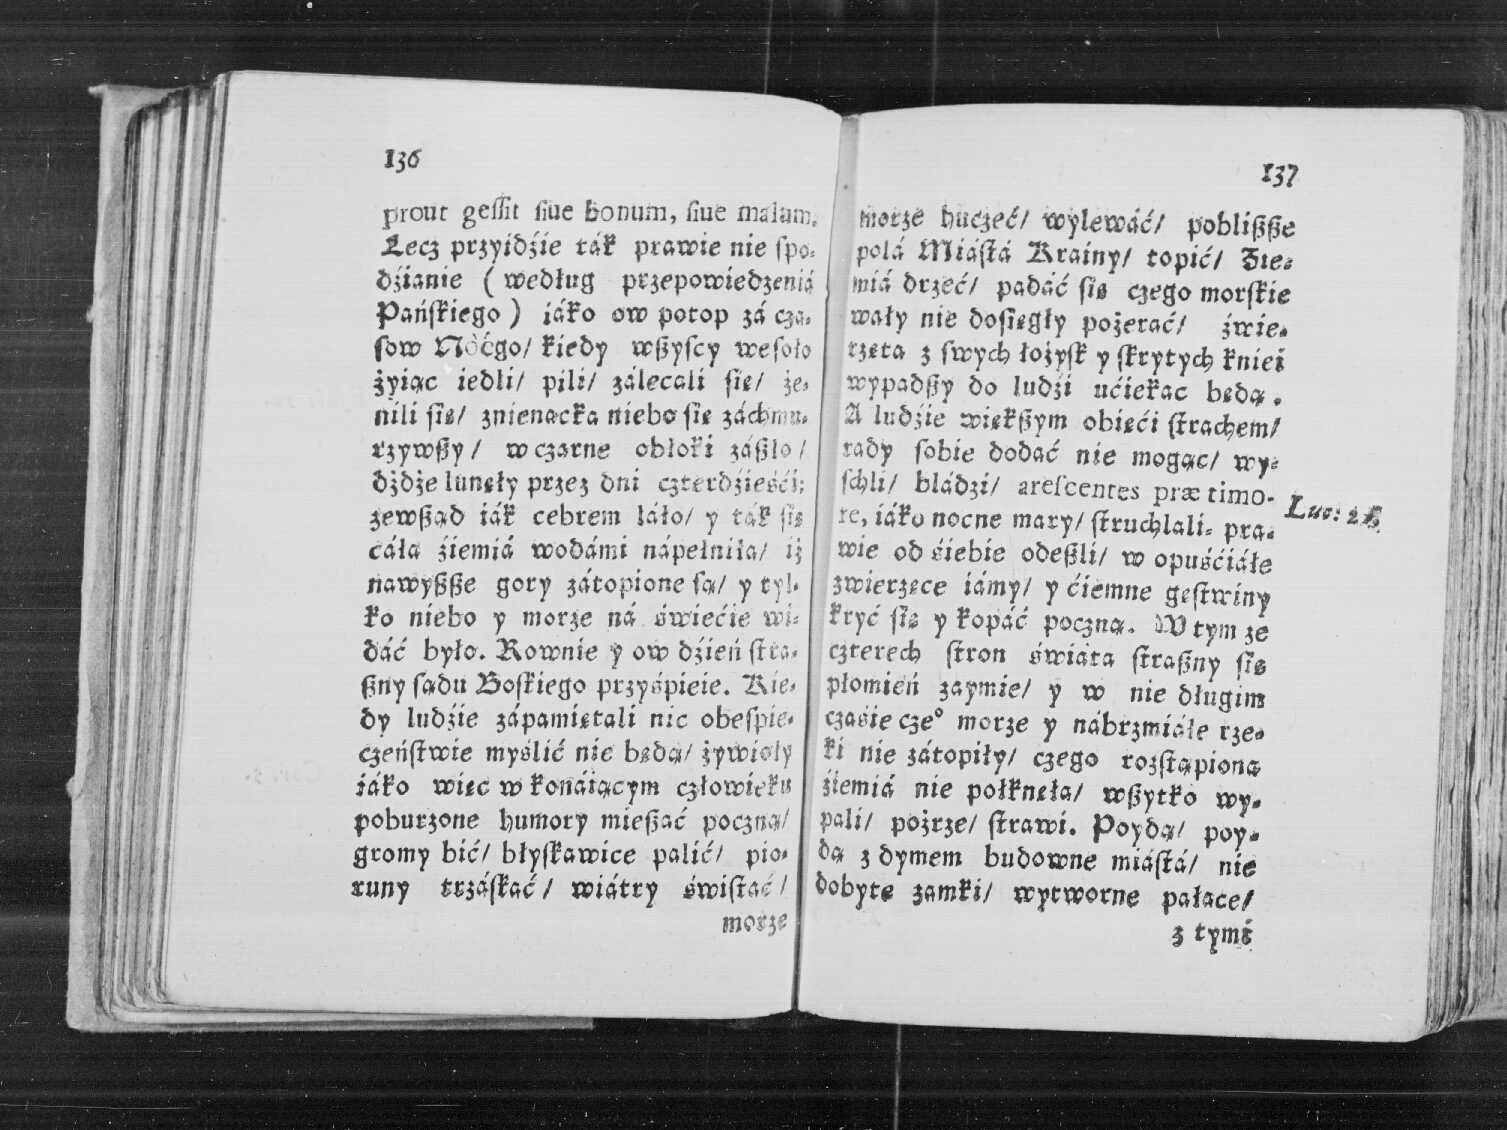 136
prout gessit siue bonum, siue malum.
Lecz przyidźie ták prawie nie spo-
dźianie ( według przepowiedzeniá
Páńskiego ) iáko ow potop zá cza-
sow Noégo/ kiedy wßyscy wesoło
żyiąc iedli/ pili/ zálecali się/ że-
nili się/ znienacka niebo się záchmu-
rzywßy/ w czarne obłoki záßło/
dżdże lunęły przez dni czterdźieśći;
zewßąd iák cebrem láło/ y ták się
cáła źiemiá wodámi nápełniła/ iż
nawyßße gory zátopione są/ y tyl-
ko niebo y morze ná świećie wi-
dáć było. Rownie y ow dźień stra-
ßny sądu Boskiego przyśpieie. Kie-
dy ludźie zápamiętali nic obespie-
czeństwie myślić nie będą/ żywioły
iáko więc w konáiącym człowieku
poburzone humory mießać poczną/
gromy bić/ błyskawice palić/ pio-
runy trzáskáć/ wiátry świstáć/
morze
137
morze huczeć/ wylewáć/ poblißße
polá Miástá Krainy/ topić/ Zie-
miá drzeć/ padáć się czego morskie
wały nie dosięgły pożerać/ źwie-
rzęta z swych łożysk y skrytych kniei
wypadßy do ludźi ućiekac będą.
A ludźie więkßym obięći strachem/
rady sobie dodać nie mogąc/ wy-
schli/ bládzi/ arescentes præ timo-
re, iáko nocne mary/ struchlali- pra-
wie od śiebie odeßli/ w opuśćiáłe
zwierzęce iámy/ y ćiemne gęstwiny
kryć się y kopáć poczną. W tym ze
czterech stron świátá straßny się
płomień zaymie/ y w nie długim
czaśie cze° morze y nábrzmiáłe rze-
ki nie zátopiły/ czego rozstąpioną
źiemiá nie połknęła/ wßytko wy-
pali/ pożrze/ strawi. Poydą/ poy-
dą z dymem budowne miástá/ nie
dobyte zamki/ wytworne pałace/
z tymi
Luc: 21.